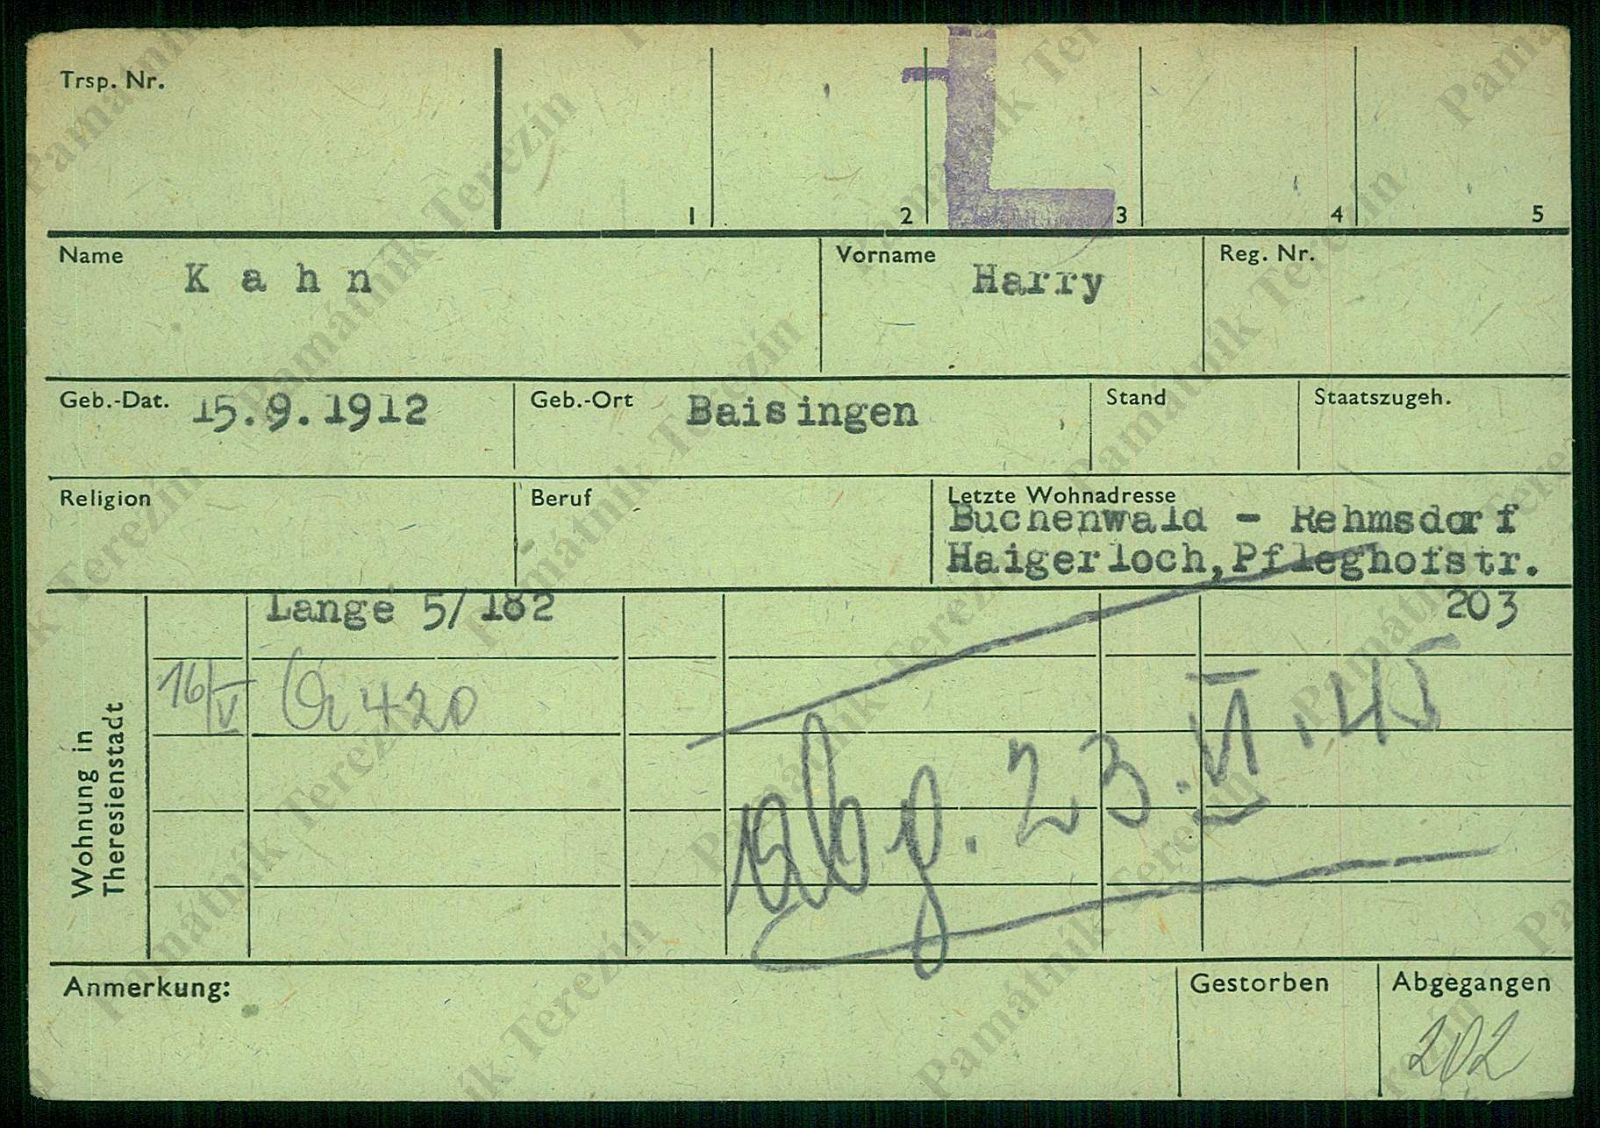 Trsp. Nr.
1 2 3 4 5
L
Name K a h n Vorname Harry Reg. Nr.
Geb.-Dat. 15.9.1912 Geb.-Ort Baisingen Stand Staatszugeh.
Religion Beruf Letzte Wohnadresse
Buchenwald - Rehmsdorf
Haigerloch,Pfleghofstr.
203
Wohnung in
Theresienstadt
Lange 5/182
16/V 420
abg. 23.VI.45
Anmerkung: Gestorben Abgegangen
202
Památník Terezín